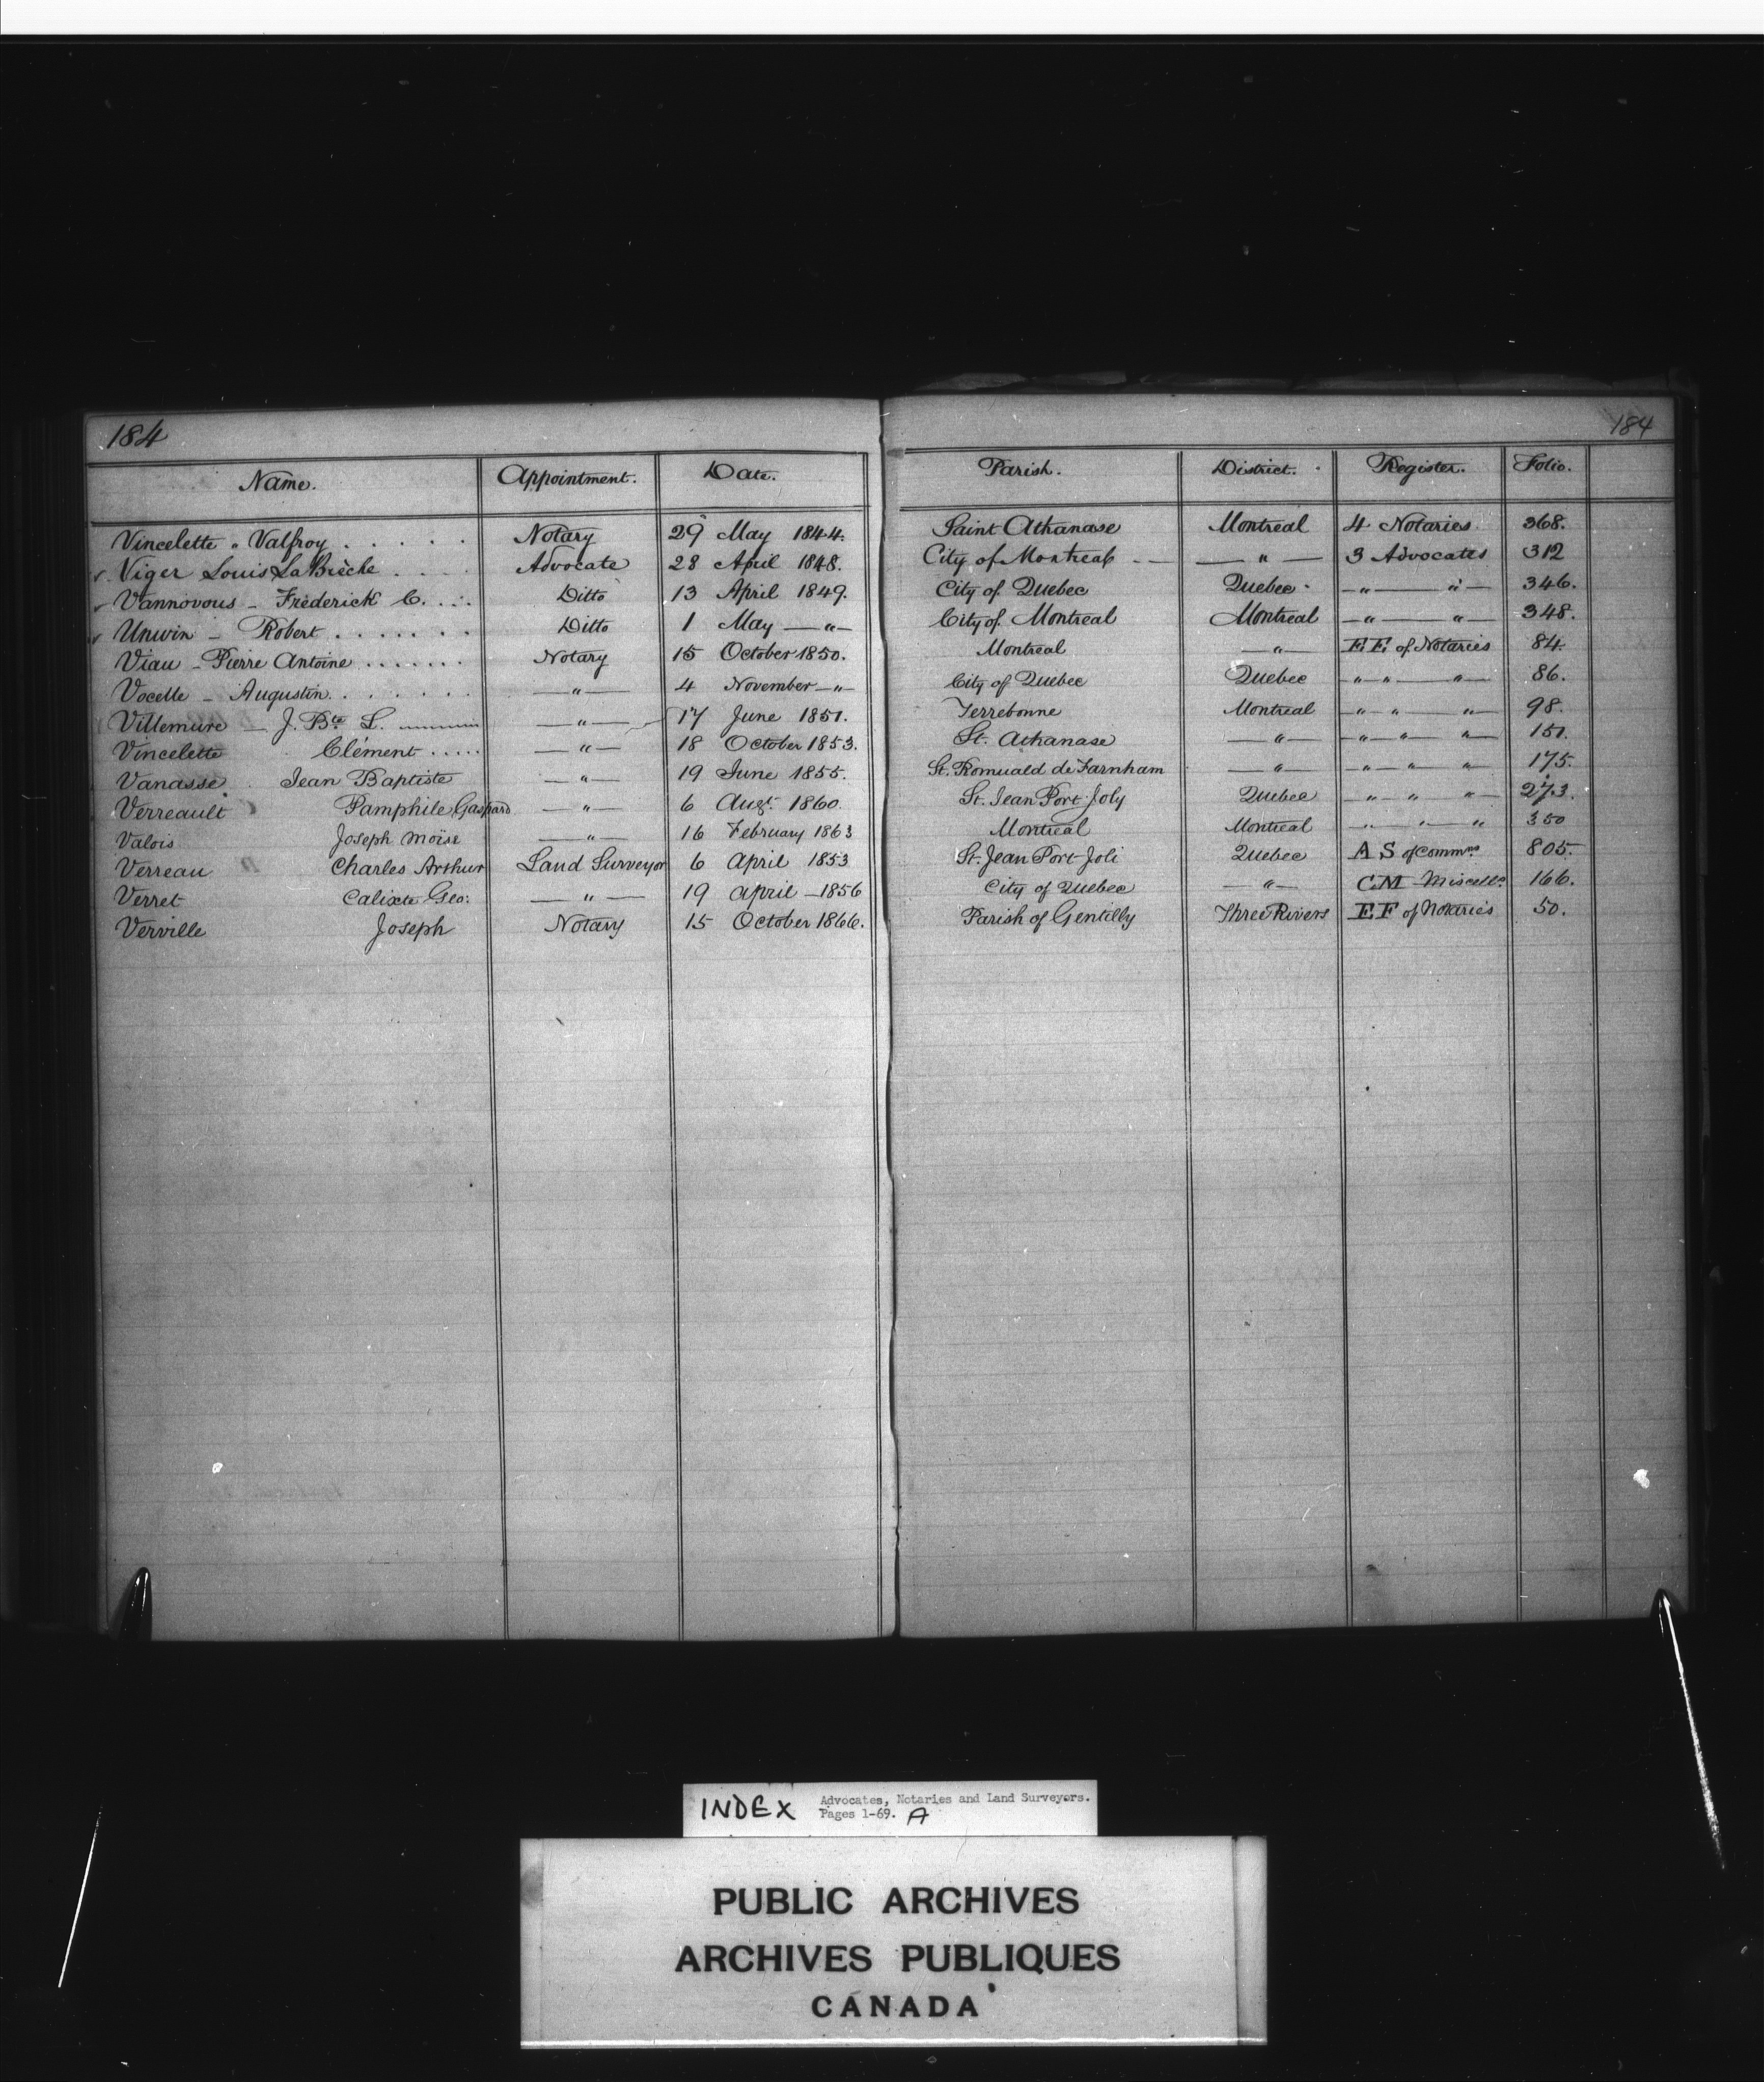 184 184
Name. Appointment. Date. Parish. District. Register. Folio.
Vincelette " Valfroy . . . . . Notary 29 May 1844. Saint Athanase Montreal 4 Notaries 368.
✓. Viger Louis LaBrèche . . . . Advocate 28 April 1848. City of Montreal - — — " — 3 Advocates 312
✓ Vannovous - Fréderick C. . . . Ditto 13 April 1849. City of Quebec Quebec — " — " — 346.
✓ Unwin - Robert . . . . . . . Ditto 1 May — " — City of Montreal Montreal — " — " — 348.
Viau - Pierre Antoine . . . . . . . Notary 15 October 1850. Montreal — " — E.F. of Notaries 84.
Vocelle - Augustin. . . . . . . — " — 4 November — " — City of Quebec Quebec — " — " — " — 86.
Villemure — J. Bte L. — " — 17 June 1851. Terrebonne Montreal — " — " — " — 98.
Vincelette Clément . . . . . — " — 18 October 1853. St. Athanase — " — — " — " — " — 151.
Vanasse Jean Baptiste — " — 19 June 1855. St. Romuald de Farnham — " — — " — " — " — 175.
Verreault Pamphile Gaspard — " — 6 Augt. 1860. St. Jean Port-Joly Quebec — " — " — " — 273.
Valois Joseph Moïse — " — 16 February 1863 Montreal Montreal — " — " — " 350
Verreau Charles Arthur Land Surveyor 6 April 1853 St. Jean Port-Joli Quebec A S of Commns 805.
Verret Calixte Geo: — " — 19 April — 1856 City of Quebec — " — C.M Miscells. 166.
Verville Joseph Notary 15 October 1866. Parish of Gentilly Three Rivers E F of Notaries 50.
INDEX Advocates, Notaries and Land Surveyors.
Pages 1-69. A
PUBLIC ARCHIVES
ARCHIVES PUBLIQUES
CANADA